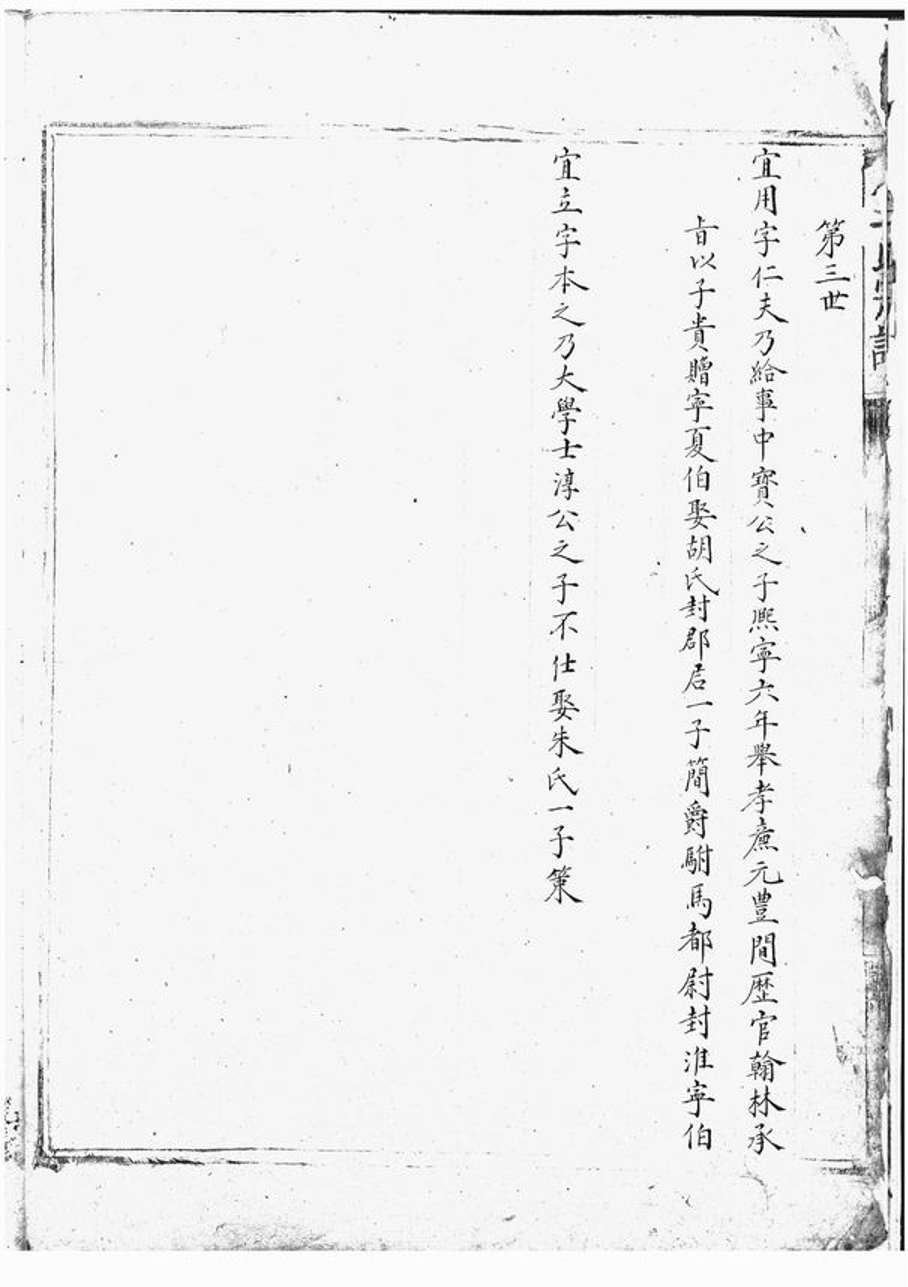 第三世
宜用字仁夫乃給事中寶公之子熈寧六年舉孝廉元豊間歴官翰林承
旨以子貴贈寧夏伯娶胡氏封郡君一子簡爵駙馬都尉封淮寧伯
宜立字本之乃大學士淳公之子不仕娶朱氏一子策